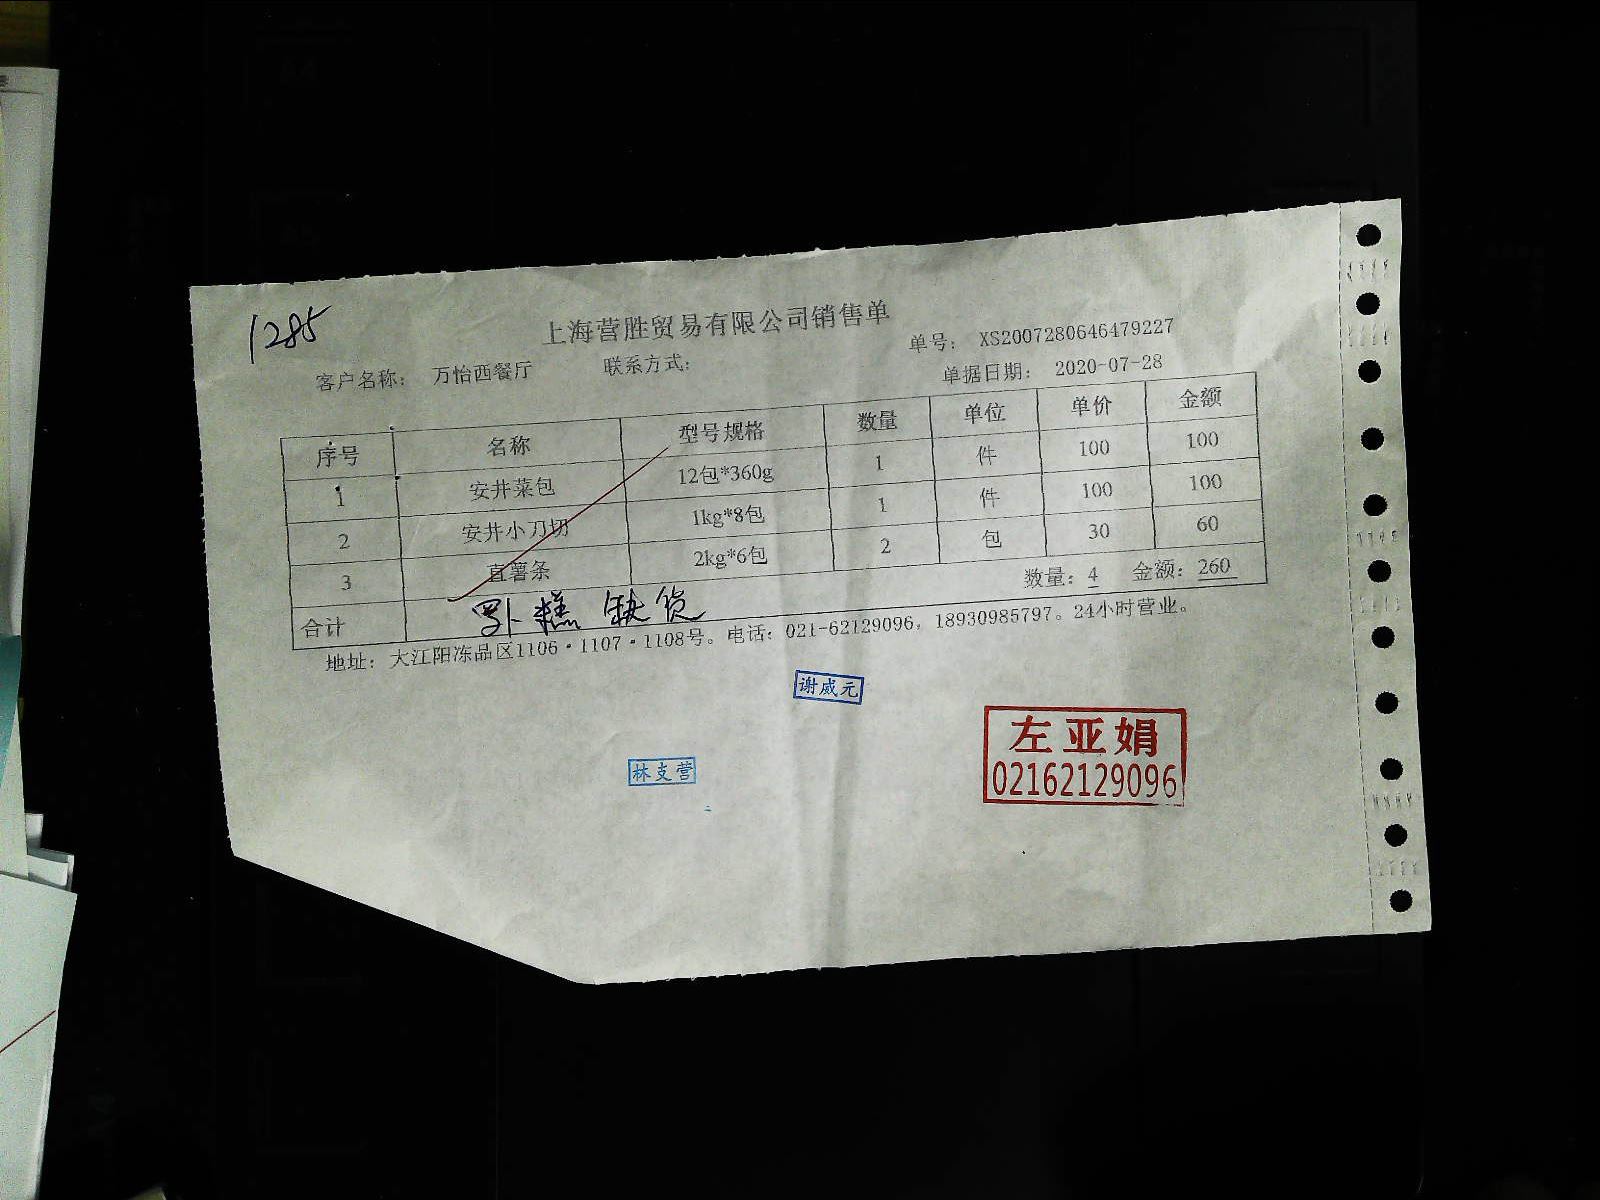 1285
上海营胜贸易有限公司销售单
单号： XS2007280646479227
客户名称： 万怡西餐厅 联系方式：
单据日期： 2020-07-28
序号 名称 型号规格 数量 单位 单价 金额
1 安井菜包 12包*360g 1 件 100 100
2 安井小刀切 1kg*8包 1 件 100 100
3 直薯条 2kg*6包 2 包 30 60
合计 数量：4 金额：260
糕 缺货
地址： 大江阳冻品区1106·1107·1108号。电话：021-62129096，18930985797。24小时营业。
谢威元
左亚娟
02162129096
林支营